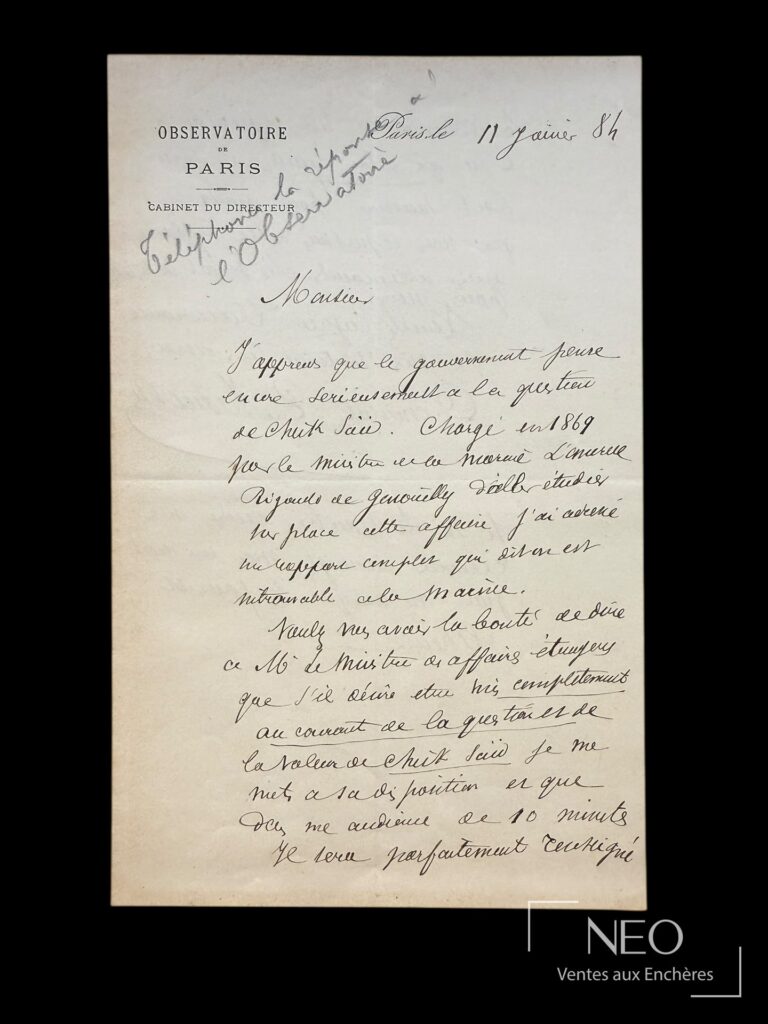 OBSERVATOIRE
DE
PARIS
CABINET DU DIRECTEUR
Paris, le 11 janvier 84
Téléphoner la réponse à
l'Observatoire
Monsieur
J'apprens que le gouvernement pense
encore serieusement a la question
de Cheik Saïd. Chargé en 1869
par le ministre de la marine L'amiral
Rigauld de Genouilly d'aller étudier
sur place cette affaire j'ai adressé
un rapport complet qui dit on est
introuvable a la marine.
Veuillez avoir la bonté de dire
a Mr le Ministre des affaires étrangeres
que s'il désire etre mis completement
au courant de la question et de
la valeur de Cheik Saïd je me
mets a sa disposition et que
dans une audience de 10 minutes
Il sera parfaitement renseigné
NEO
Ventes aux Enchères